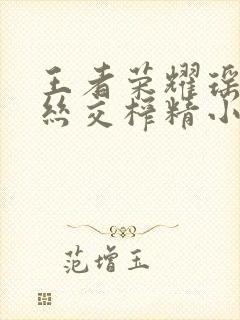 王者荣耀瑶
丝交榨精小
范增玉